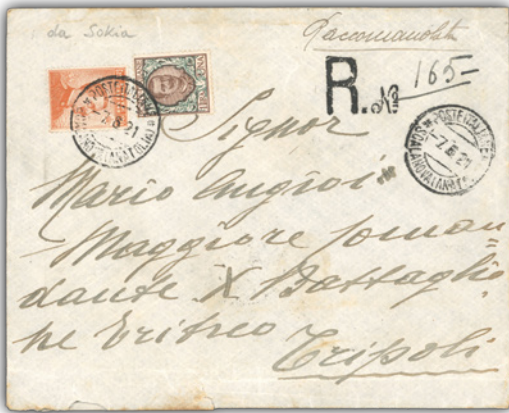 da Sokia
Raccomandata
R. No 165=
UNA LIRA UNA
POSTE ITALIANE
7.6.21
SCALANOVA (ANATOLIA)
POSTE ITALIANE
7.6.21
SCALANOVA (ANATOLIA)
Signor
Mario Angioi
Maggiore Coman=
dante X Battaglio
ne Eritreo
Tripoli